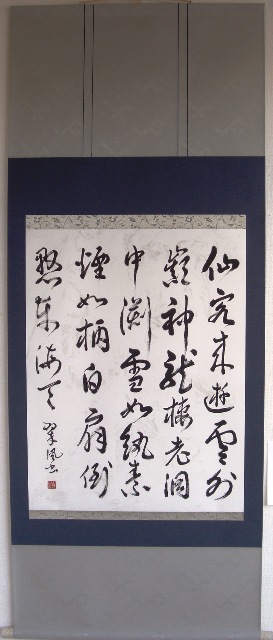 仙客来遊雲外
巓神龍棲老洞
中淵雪如紈素
煙如柄白扇倒
懸東海天